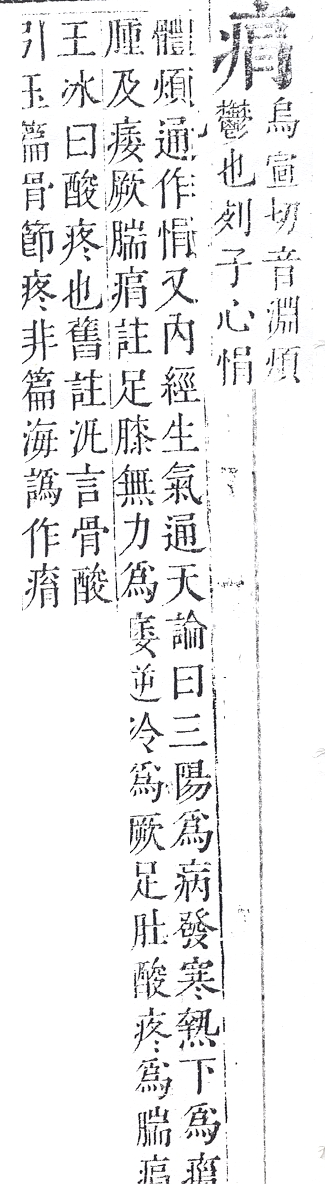 㾓
烏宣切音淵煩
鬱也列子心悁
體煩通作悁又內經生氣通天論曰三陽爲病發寒熱下爲癰
腫及痿厥腨㾓註足膝無力爲痿逆冷爲厥足肚酸疼爲腨㾓
王冰曰酸疼也舊註汎言骨酸
引玉篇骨節疼非篇海譌作痟